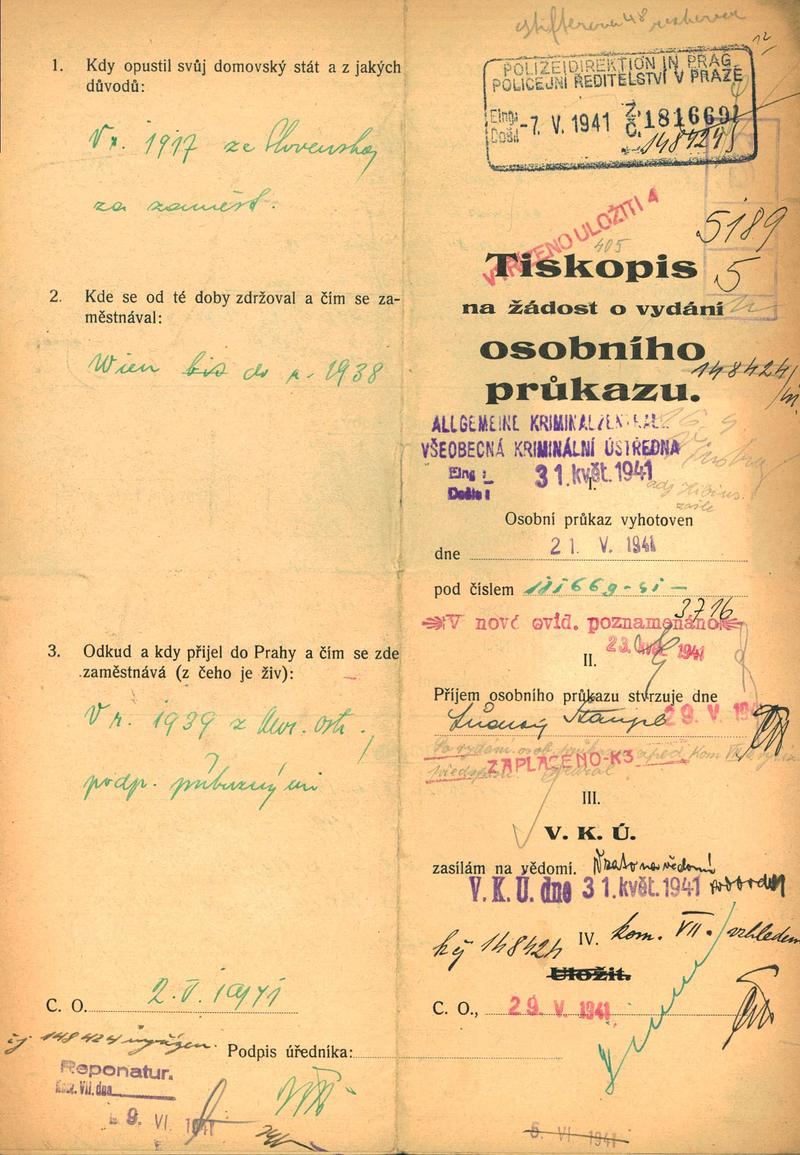 1. Kdy opustil svůj domovský stát a z jakých
důvodů:
V r. 1917 ze Slovenska
za zaměst.
2. Kde se od té doby zdržoval a čím se za-
městnával:
Wien bis do r. 1938
3. Odkud a kdy přijel do Prahy a čím se zde
zaměstnává (z čeho je živ):
V r. 1939 z
podp. příbuznými
C. O. 2. V. 1941
148424
Podpis úředníka:
Reponatur.
Kom. VII. dne
9. VI. 1941
48
POLIZEIDIREKTION IN PRAG
POLICEJNÍ ŘEDITELSTVÍ V PRAZE
Eing:
Došl: -7. V. 1941 Z. Č. 181669
148424
VYŘÍZENO ULOŽITI 4
5189
405
Tiskopis
5
na žádost o vydání
osobního
148424/
průkazu.
ALLGEMEINE KRIMINALZENTRALE
VŠEOBECNÁ KRIMINÁLNÍ ÚSTŘEDNA
Eing:
Došlo: 31. květ. 1941
I.
Osobní průkaz vyhotoven
dne 21. V. 1941
pod číslem
3716
V nové evid. poznamenáno
23. 1941
II.
Příjem osobního průkazu stvrzuje dne
29. V. 1941
ZAPLACENO-K3
III.
V. K. Ú.
zasílám na vědomí. Vzato na vědomí
V. K. Ú. dne 31. květ. 1941
148424 IV. kom. VII. vzhledem
Uložit.
C. O., 29. V. 1941
6. VI. 1941